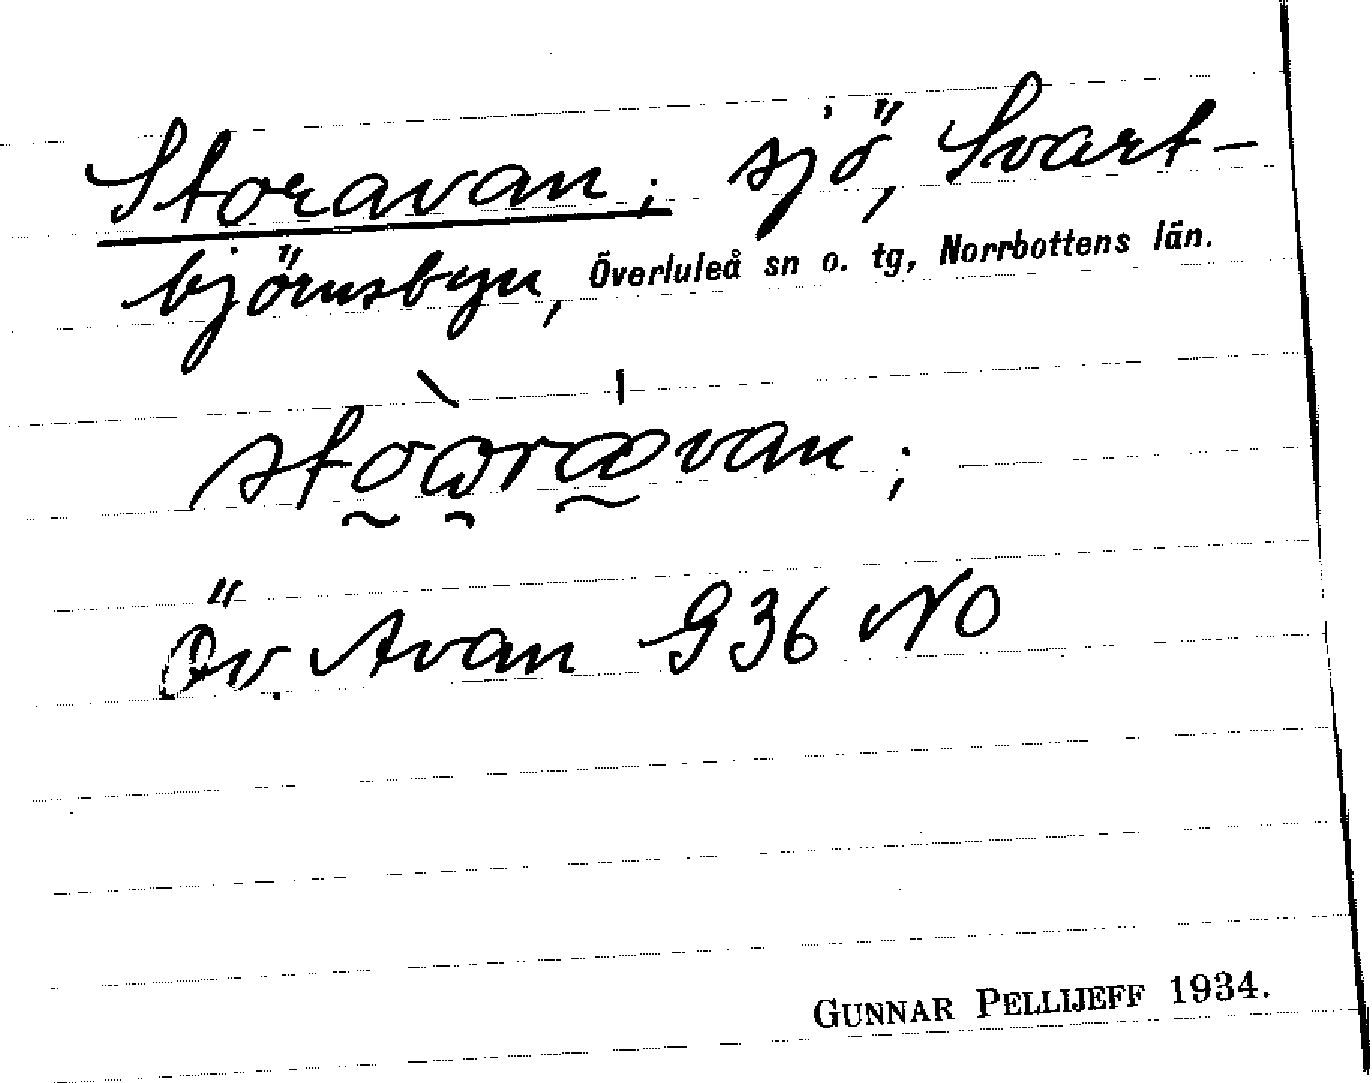 Storavan; sjö, Svart-
björnsbyn, Överluleå sn o. tg, Norrbottens län.
Öv. Avan G36 NO
GUNNAR PELLIJEFF 1934.